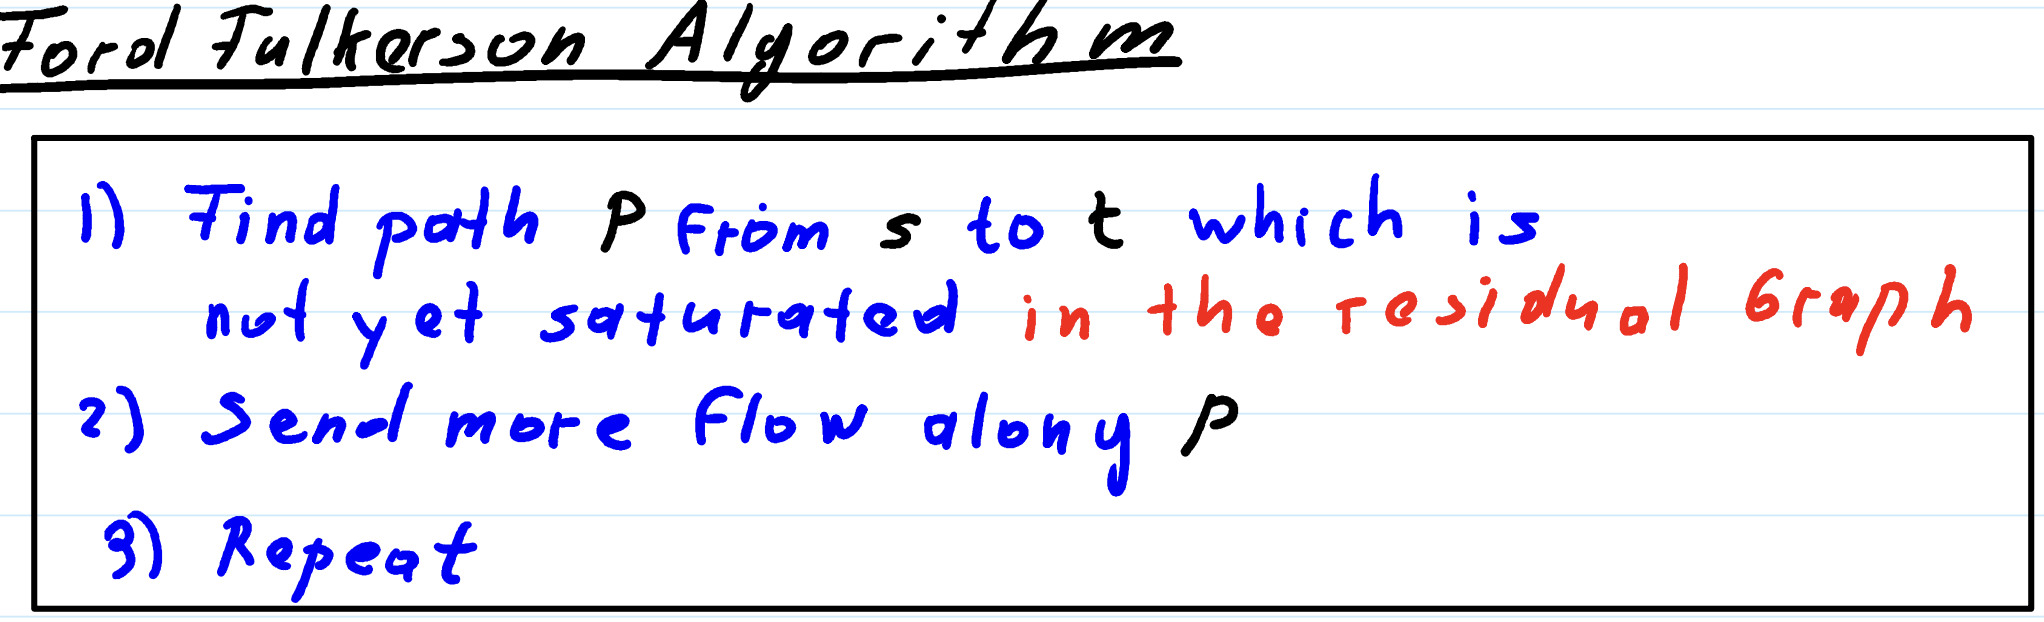 Ford Fulkerson Algorithm
1) Find path P from s to t which is
not yet saturated in the residual Graph
2) Send more flow along P
3) Repeat